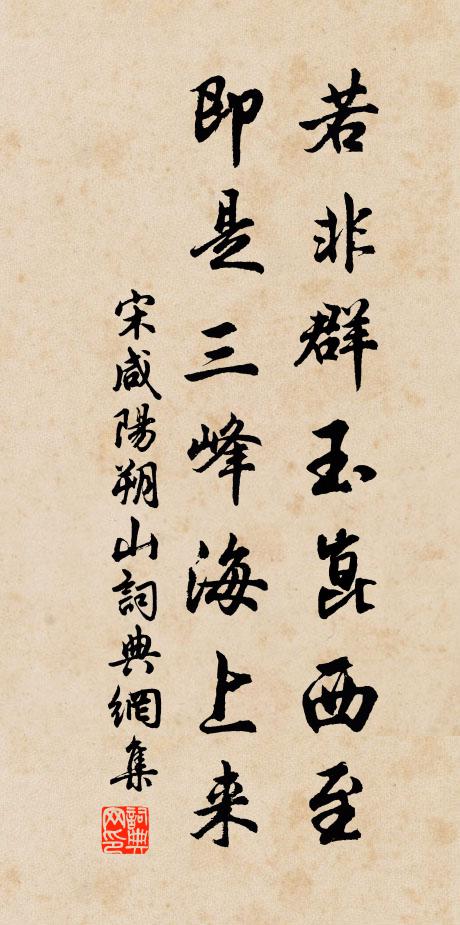 若非群玉崑西至
即是三峰海上来
宋咸陽朔山詞典網集
詞典
网印